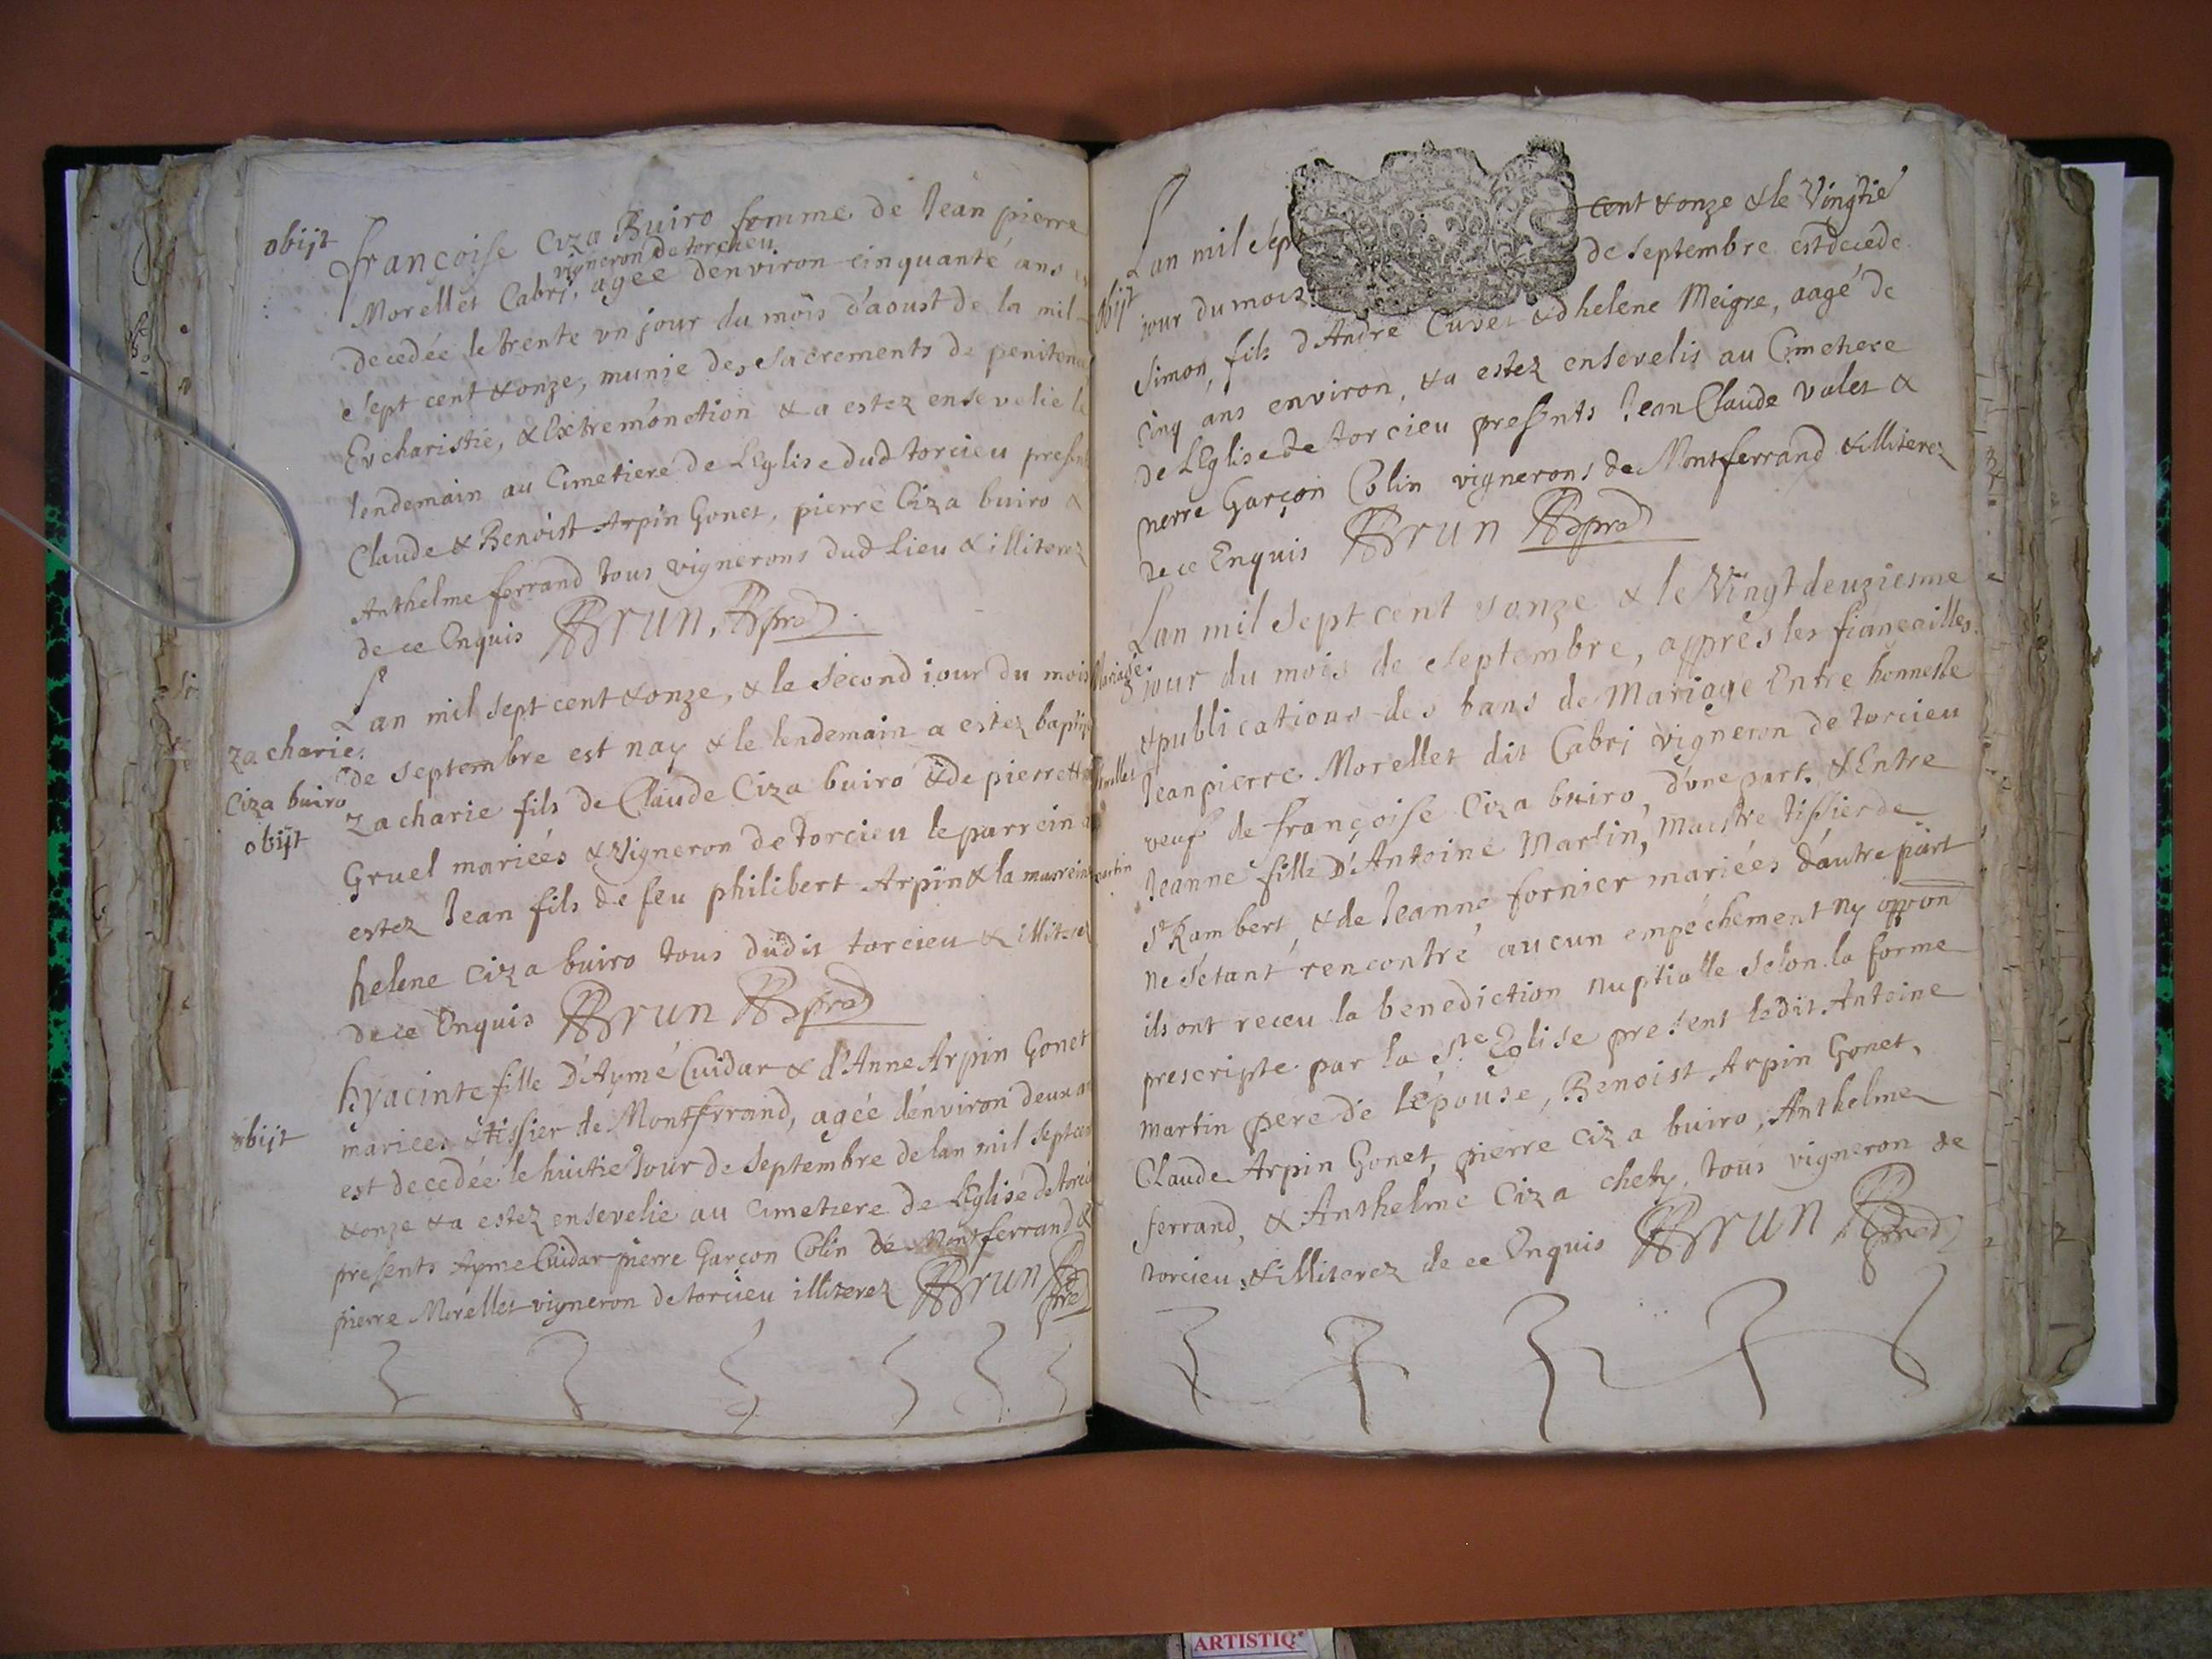 obijt
françoise Ciza Buiro femme de Jean pierre
vigneron de torcieu
Morellet Cabri, agée denviron cinquante ans
decedée le trente vn jour du mois d'aoust de la mil
sept cent & onze, munie des sacrements de penitence
Evcharistie, & Extremonction & a estez ensevelie le
lendemain au Cimetiere de LEglise dud torcieu presen
Claude & Benoist Arpin Gonet, pierre Ciza buiro &
Anthelme ferrand tous vignerons dud Lieu & illiterez
de ce Enquis Brun,
zacharie
Ciza buiro
obijt
Lan mil sept cent & onze, & le second iour du mois
de septembre est nay & le lendemain a estez baptiz
zacharie fils de Claude Ciza buiro & de pierrette
Gruel mariées & Vigneron de Torcieu le parrein a
estez Jean fils de feu philibert Arpin & la marreine
helene Ciza buiro tous dudit torcieu & illiterez
de ce Enquis Brun
obijt
hyacinte fille D'Aymé Cuidar & d'Anne Arpin Gonet
mariees & tissier de Montferrand, agée denviron deux an
est decedée le huitie Jour de septembre de lan mil sept cen
& onze & a estez ensevelie au Cimetiere de LEglise de torcieu
presents Ayme Cuidar pierre Garçon Colin de Montferrand &
pierre Morellet vigneron de torcieu illiterez Brun
obijt
Lan mil sept cent & onze & le Vingtie
jour du mois de septembre est decede
simon, fils d'Andre Cuvet & d helene Meigre, aagé de
Cinq ans environ, & a estez ensevelis au Cimetiere
de LEglise de torcieu presents Jean Claude valet &
pierre Garçon Colin vignerons de Montferrand & illiterez
de ce Enquis Brun
Mariage
Morellet
martin
Lan mil sept cent & onze & le Vingt deuziesme
jour du mois de septembre, apprés les fiançailles
& publications des bans de Mariage Entre honneste
Jean pierre Morellet dit Cabri vigneron de torcieu
veuf de françoise Ciza buiro, d'vne part, & Entre
Jeanne fille D'Antoine Martin, Maistre tissier de
St Rambert, & de Jeanne fornier mariées d'autre part
ne s'etant rencontré aucun empéchement ny oppon
ils ont receu la benediction nuptialle selon la forme
prescripte par la Ste Eglise present ledit Antoine
martin pere de Lépouse, Benoist Arpin Gonet,
Claude Arpin Gonet, pierre Ciza buiro, Anthelme
ferrand, & Anthelme Ciza chety, tous vigneron de
torcieu, & illiterez de ce Enquis Brun
ARTISTIQ